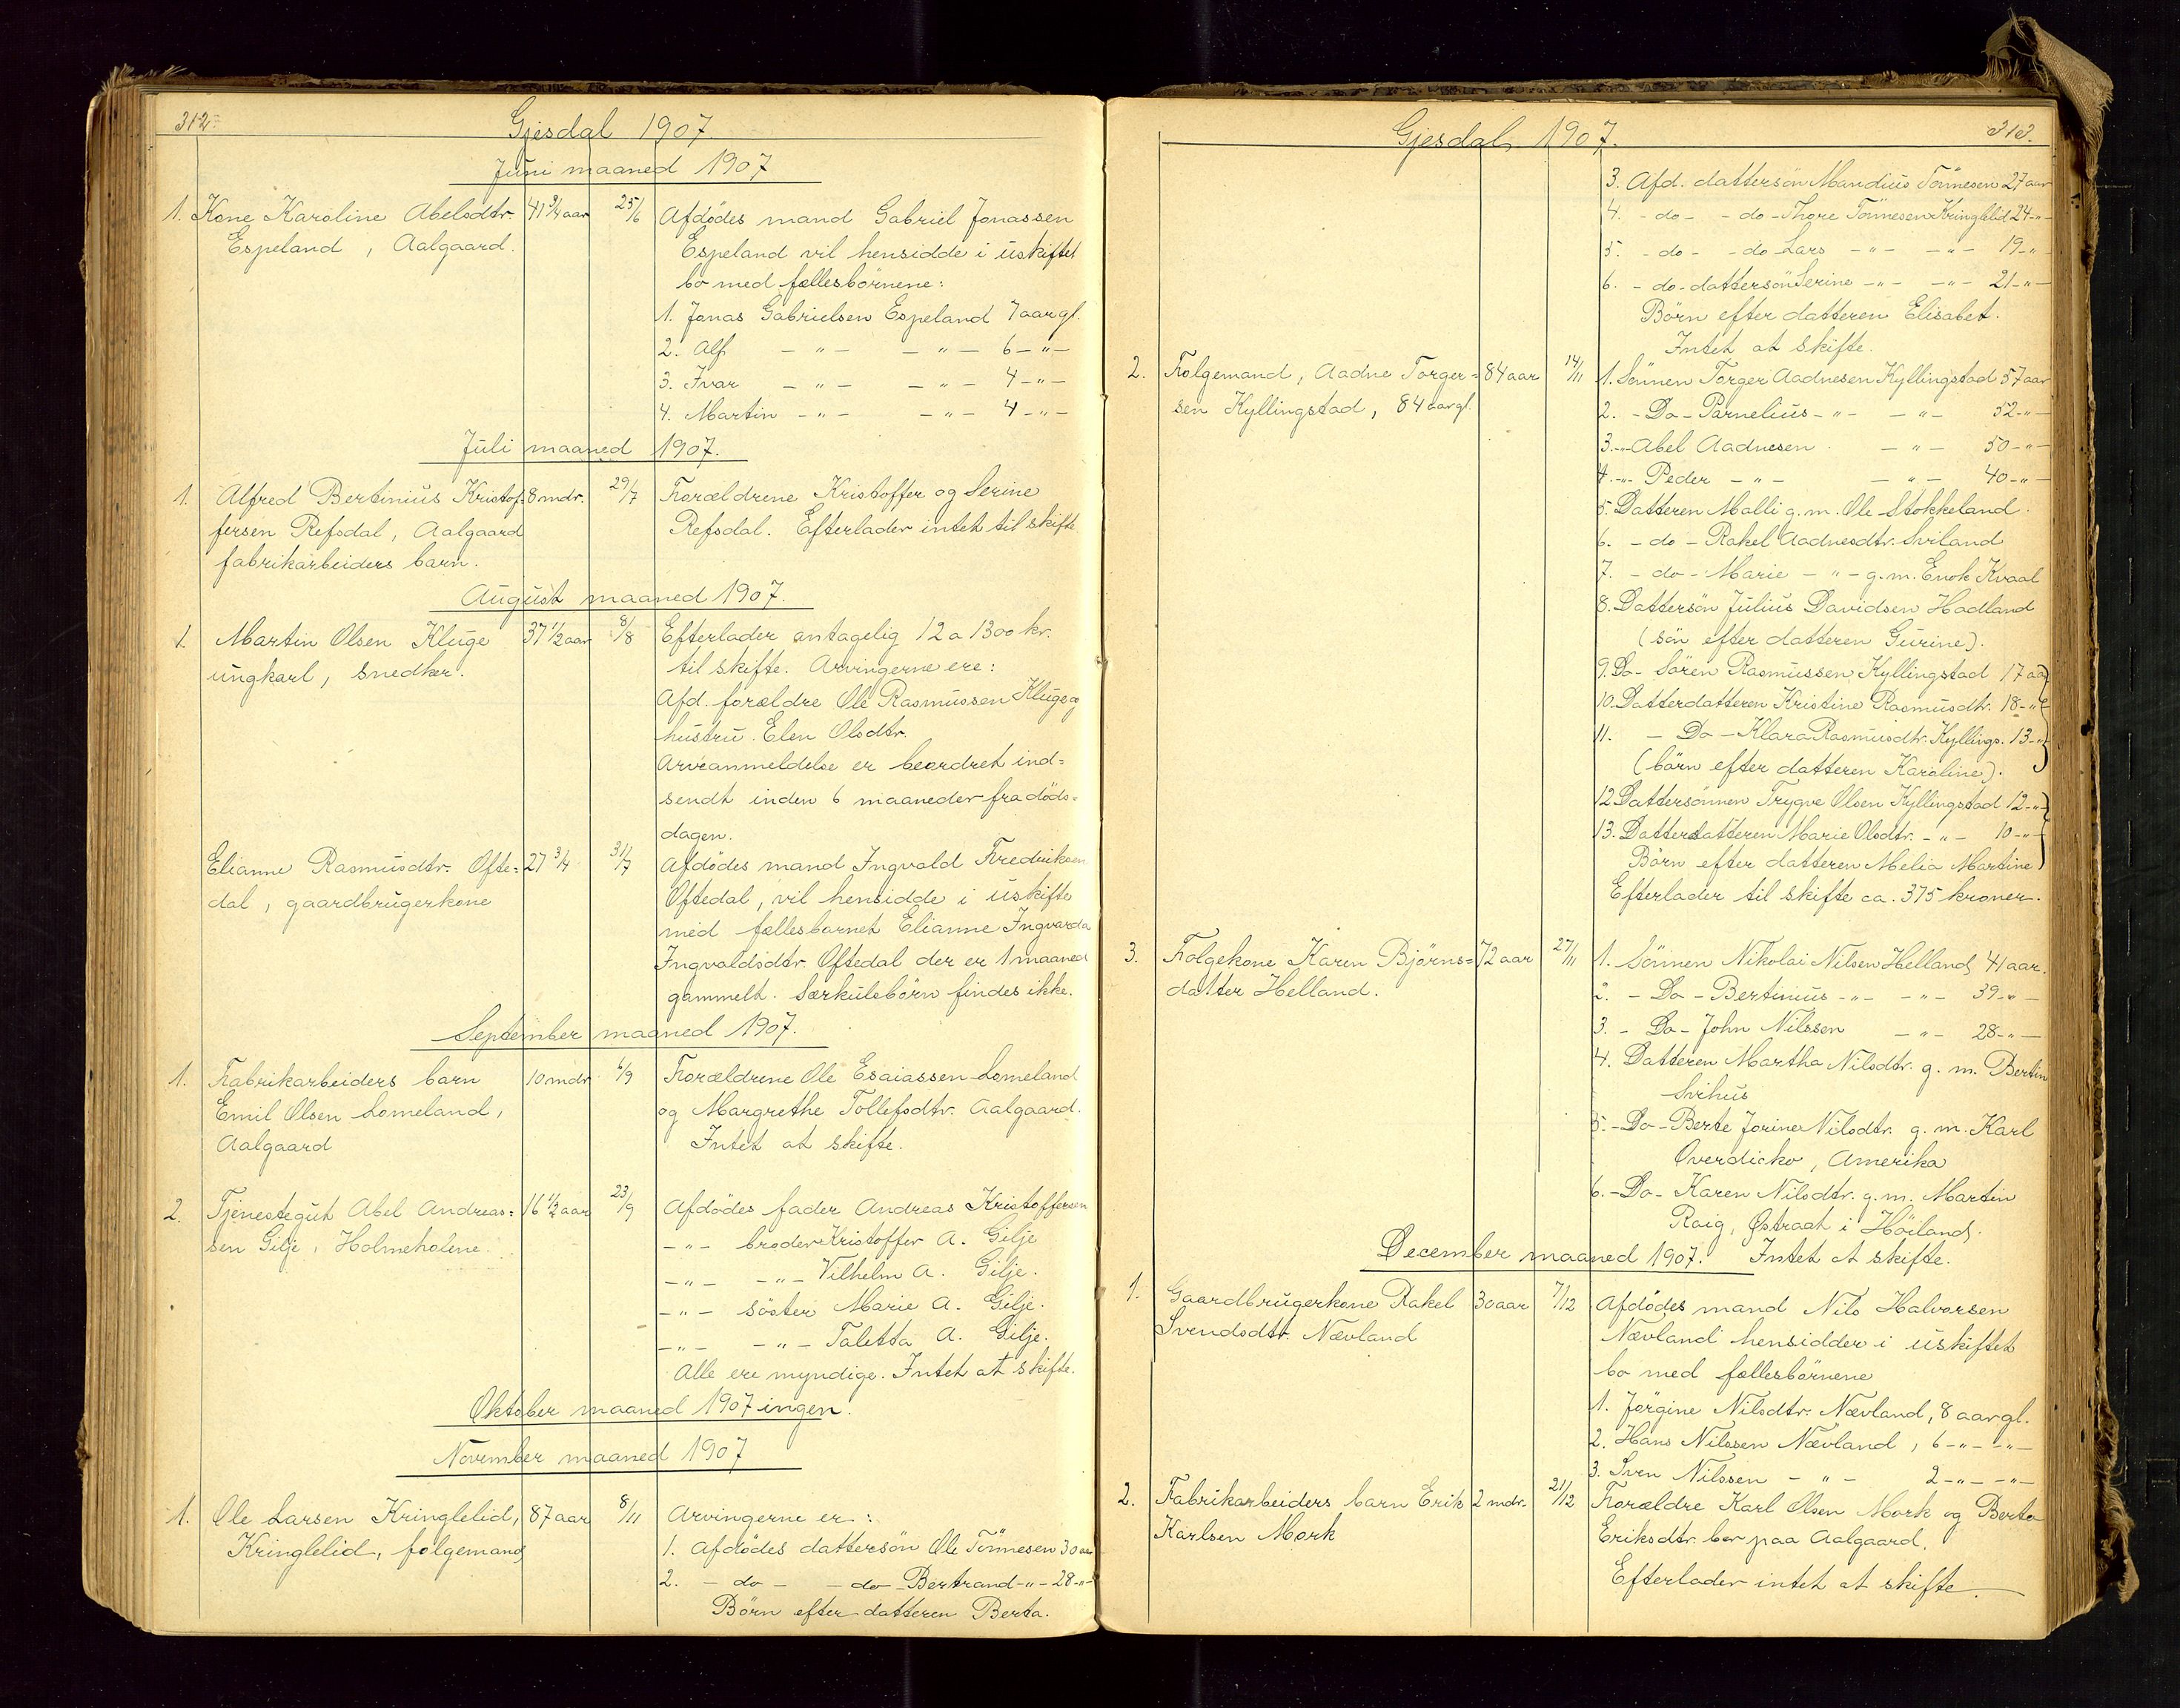 312
Gjesdal 1907.
Juni maaned 1907
1. Kone Karoline Abelsdtr. 41 3/4 aar 25/6 Afdödes mand Gabriel Jonassen
Espeland, Aalgaard. Espeland vil hensidde i uskiftet
bo med fællesbörnene:
1. Jonas Gabrielsen Espeland 7 aar gl.
2. Alf - " - - " - 6 - " -
3. Ivar - " - - " - 4 - " -
4. Martin - " - - " - 4 - " -
Juli maaned 1907.
1. Alfred Bertinius Kristof- 8 mdr. 29/7 Forældrene Kristoffer og Serine
fersen Refsdal, Aalgaard Refsdal. Efterlader intet til skifte
fabrikarbeiders barn.
August maaned 1907.
1. Martin Olsen Kluge 37 1/2 aar 8/8 Efterlader antagelig 12 a 1300 kr.
ungkarl, snedker. til skifte. Arvingerne ere:
Afd. forældre Ole Rasmussen Kluge og
hustru Elen Olsdtr.
Arveanmeldelse er beordret ind=
sendt inden 6 maaneder fra döds=
dagen.
Elianne Rasmusdtr. Ofte= 27 3/4 31/7 Afdödes mand Ingvald Fredriksen
dal, gaardbrugerkone Oftedal, vil hensidde i uskifte
med fællesbarnet Elianne Ingvarda
Ingvaldsdtr. Oftedal der er 1 maaned
gammelt. Særkulsbörn findes ikke.
September maaned 1907.
1. Fabrikarbeiders barn 10 mdr /9 Forældrene Ole Esaiassen Lomeland
Emil Olsen Lomeland, og Margrethe Tollefsdtr. Aalgaard.
Aalgaard Intet at skifte.
2. Tjenestegut Abel Andreas= 16 1/2 aar 23/9 Afdödes fader Andreas Kristoffersen
sen Gilje, Holmeholene. - " - broder Kristoffer A. Gilje
- " - - " - Vilhelm A. Gilje.
- " - söster Marie A. Gilje.
- " - - " - Taletta A. Gilje.
Alle ere myndige. Intet at skifte.
Oktober maaned 1907 ingen.
November maaned 1907
1. Ole Larsen Kringlelid, 87 aar 8/11 Arvingerne er:
Kringlelid, folgemand 1. Afdödes dattersön Ole Tönnesen 30 aar
2. - do - - do - Bertrand - " - 28 - " -
Börn efter datteren Berta.
Gjesdal 1907.
313.
3. Afd. dattersön Mandius Tönnesen 27 aar
4. - do - - do - Thore Tönnesen Kringlelid 24 - " -
5. - do - - do - Lars - " - - " - 19 - " -
6. - do - dattersön Serine - " - - " - 21 - " -
Börn efter datteren Elisabet.
Intet at skifte.
2. Folgemand, Aadne Torger= 84 aar 14/11 1. Sönnen Torger Aadnesen Kyllingstad 57 aar
sen Kyllingstad, 84 aar gl. 2. - Do - Parnelius - " - - " - 52 - " -
3. - " - Abel Aadnesen - " - 50 - " -
4. - " - Peder - " - - " - 40 - " -
5. Datteren Malli g.m. Ole Stokkeland.
6. - do - Rakel Aadnesdtr. Sviland
7. - do - Marie - " - g.m. Enok Kvaal
8. Dattersön Julius Davidsen Hadland
(sön efter datteren Gurine).
9. Do - Sören Rasmussen Kyllingstad 17 aar
10. Datterdatteren Kristine Rasmusdtr. 18 - " -
11. - Do - Klara Rasmusdtr. Kyllings. 13 - " -
(börn efter datteren Karoline).
12. Dattersönnen Trygve Olsen Kyllingstad 12 - " -
13. Datterdatteren Marie Olsdtr. - " - 10 - " -
Börn efter datteren Melia Martine
Efterlader til skifte ca. 375 kroner.
3. Folgekone Karen Bjørns= 72 aar 27/11 1. Sönnen Nikolai Nilsen Helland 41 aar.
datter Helland. 2. - Do - Bertinius - " - - " - 39 - " -
3. - Do - John Nilssen - " - 28 - " -
4. Datteren Martha Nilsdtr. g. m. Bertin
Svihus
5. - Do - Berte Jorine Nilsdtr. g. m. Karl
Overdicko, Amerika
6. - Do - Karen Nilsdtr. g. m. Martin
Roig, Østradt i Höiland.
December maaned 1907. Intet at skifte.
1. Gaardbrugerkone Rakel 30 aar 7/12 Afdödes mand Nils Halvorsen
Svendsdtr. Nævland Nævland hensidder i uskiftet
bo med fællesbörnene
1. Jörgine Nilsdtr. Nævland, 8 aar gl.
2. Hans Nilssen Nævland, 6 - " - - " -
3. Sven Nilssen - " - 2 - " - - " -
2. Fabrikarbeiders barn Erik 2 mdr. 21/12 Forældre Karl Olsen Mork og Berta
Karlsen Mork Eriksdtr. bor paa Aalgaard.
Efterlader intet at skifte.